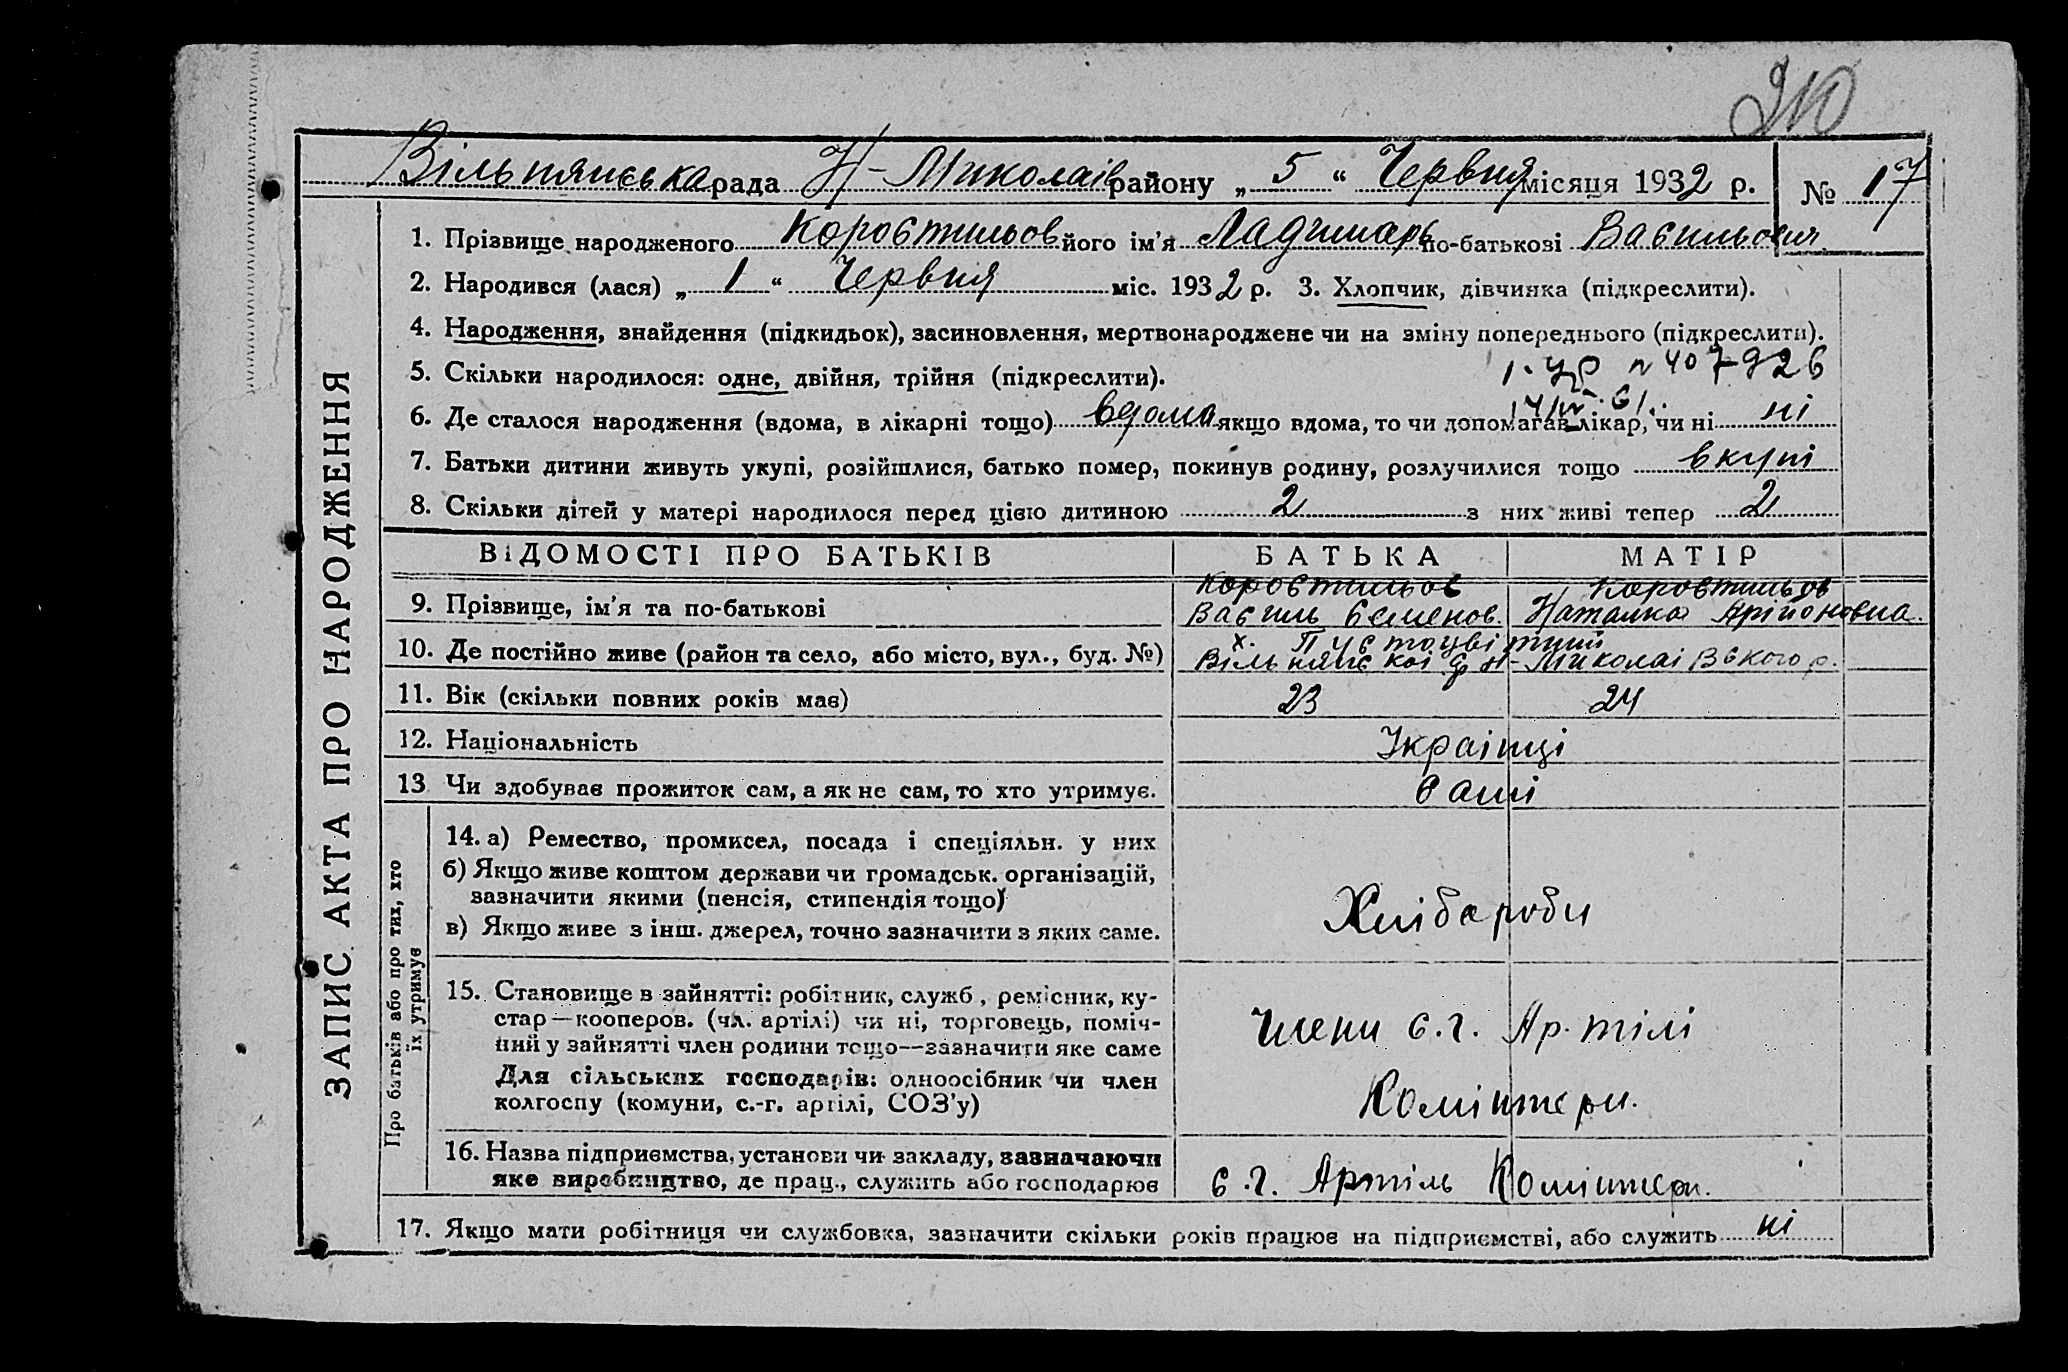 210
Вільнянська рада Н-Миколаїв району „ 5 “ Червня місяця 1932 р. № 17
ЗАПИС АКТА ПРО НАРОДЖЕННЯ
1. Прізвище народженого Коростильов його ім’я Ладимарь по-батькові Васильовия
2. Народився (лася) „ 1 “ Червня міс. 1932 р. 3. Хлопчик, дівчинка (підкреслити).
4. Народження, знайдення (підкидьок), засиновлення, мертвонароджене чи на зміну попереднього (підкреслити).
5. Скільки народилося: одне, двійня, трійня (підкреслити).
6. Де сталося народження (вдома, в лікарні тощо) вдома якщо вдома, то чи допомагав лікар, чи ні ні
7. Батьки дитини живуть укупі, розійшлися, батько помер, покинув родину, розлучилися тощо вкупі
8. Скільки дітей у матері народилося перед цією дитиною 2 з них живі тепер 2
ВІДОМОСТІ ПРО БАТЬКІВ БАТЬКА МАТІР
Коростильов Коростильов
9. Прізвище, ім’я та по-батькові Василь Семенов. Наталка Арійоновна.
х. Пустоцвітний
10. Де постійно живе (район та село, або місто, вул., буд. №) Вільнянскої Н-Миколаівского р.
11. Вік (скільки повних років має) 23 24
12. Національність Українці
13 Чи здобуває прожиток сам, а як не сам, то хто утримує. самі
Про батьків або про тих, хто
їх утримує
14. а) Ремество, промисел, посада і спеціяльн. у них
б) Якщо живе коштом держави чи громадськ. організацій,
зазначити якими (пенсія, стипендія тощо)
в) Якщо живе з інш. джерел, точно зазначити з яких саме.
Хлібароби
15. Становище в зайнятті: робітник, служб, ремісник, ку-
стар—кооперов. (чл. артілі) чи ні, торговець, поміч-
ний у зайнятті член родини тощо—зазначити яке саме
Для сільських господарів: одноосібник чи член
колгоспу (комуни, с.-г. артілі, СОЗ’у)
Члени с.г. Ар.тілі
Комінтерн.
16. Назва підприємства, установи чи закладу, зазначаючи
яке виробництво, де прац., служить або господарює
с.г. Артіль Комінтерн.
17. Якщо мати робітниця чи службовка, зазначити скільки років працює на підприємстві, або служить ні